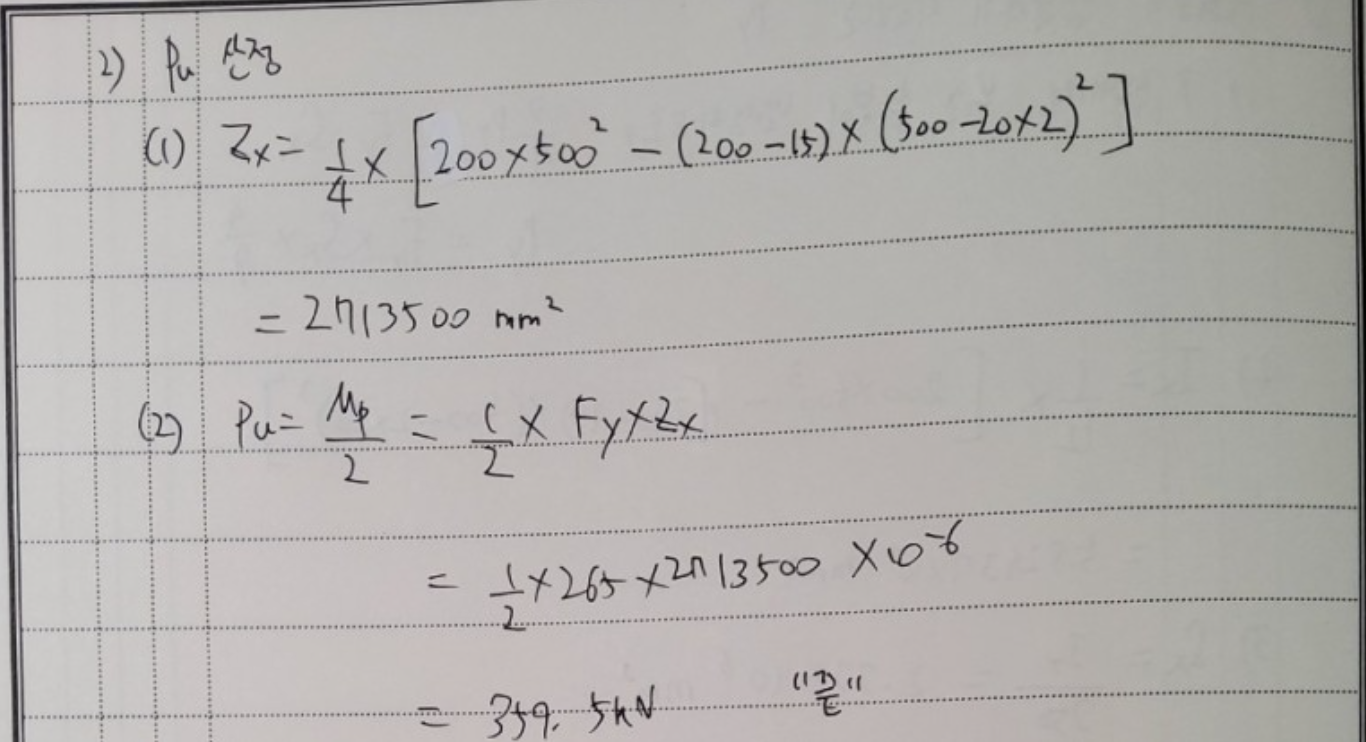 2) Pu 산정
(1) Zx = 1/4 × [200×500² - (200-15)×(500-20×2)²]
= 2713500 mm²
(2) Pu = Mp/2 = 1/2 × Fy×Zx
= 1/2 × 265 × 2713500 × 10⁻⁶
= 359.5kN "끝"